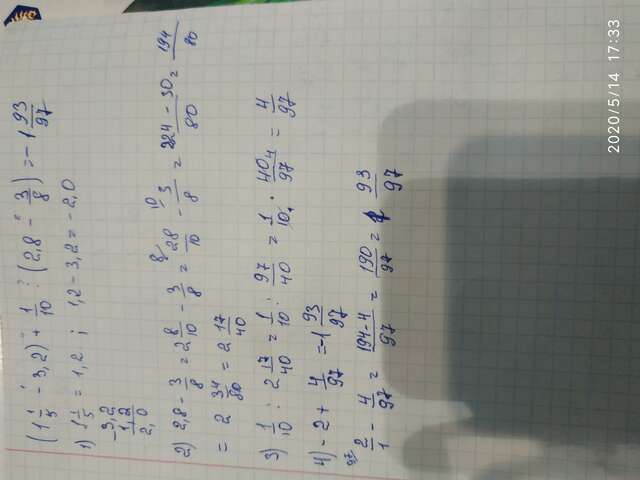 (1 1/5 - 3,2) + 1/10 : (2,8 - 3/8) = -1 93/97
1) 1 1/5 = 1,2 ; 1,2 - 3,2 = -2,0
-3,2
1,2
2,0
2) 2,8 - 3/8 = 2 8/10 - 3/8 = 28/10 - 3/8 = 224 - 30/80 = 194/80
= 2 34/80 = 2 17/40
3) 1/10 : 2 17/40 = 1/10 : 97/40 = 1/10 · 40/97 = 4/97
4) -2 + 4/97 = -1 93/97
2/1 - 4/97 = 194-4/97 = 190/97 = 1 93/97
2020/5/14 17:33